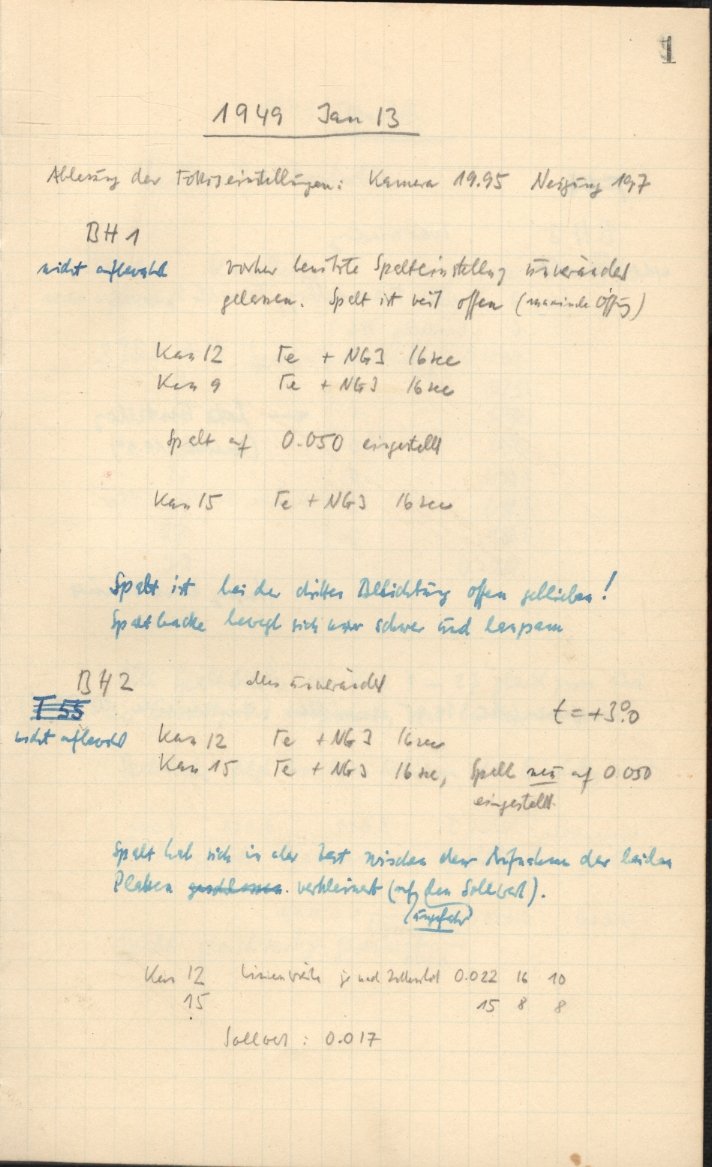 1
1949 Jan 13
Ablesung der Fokuseinstellungen: Kamera 19.95 Neigung 19,7
BH 1
nicht aufbewahrt vorher benützte Spalteinstellung unverändert
gelassen. Spalt ist weit offen (maximale Öffng)
Kas 12 Fe + NG3 16 sec
Kas 9 Fe + NG3 16 sec
Spalt auf 0.050 eingestellt
Kas 15 Fe + NG3 16 sec
Spalt ist bei der dritten Belichtung offen geblieben!
Spaltbacke bewegt sich nur schwer und langsam
BH 2 alles unverändert
T 55 t = +3°.0
nicht aufbewahrt Kas 12 Fe + NG3 16 sec
Kas 15 Fe + NG3 16 sec, Spalt neu auf 0.050
eingestellt
Spalt hat sich in der Zeit zwischen den Aufnahmen der beiden
Platten geschlossen verkleinert (auf den Sollwert).
ungefähr
Kas 12 Linienbreite je nach 0.022 16 10
15 15 8 8
Sollwert: 0.017